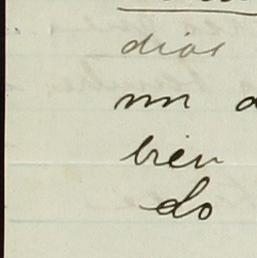 dias
un a
bien
do